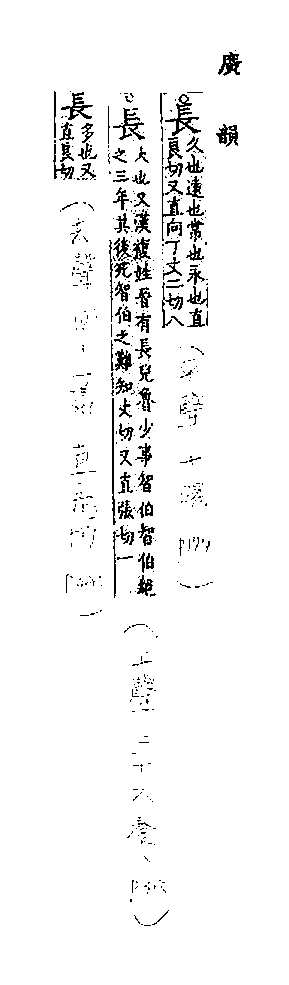 廣韻
長 久也遠也常也永也直
良切又直向丁丈二切八
(平聲十陽
長 大也又漢複姓晉有長兒魯少事智伯智伯絕
之三年其後死智伯之難知丈切又直張切一
(上聲三十六養
長 多也又
直良切
(去聲